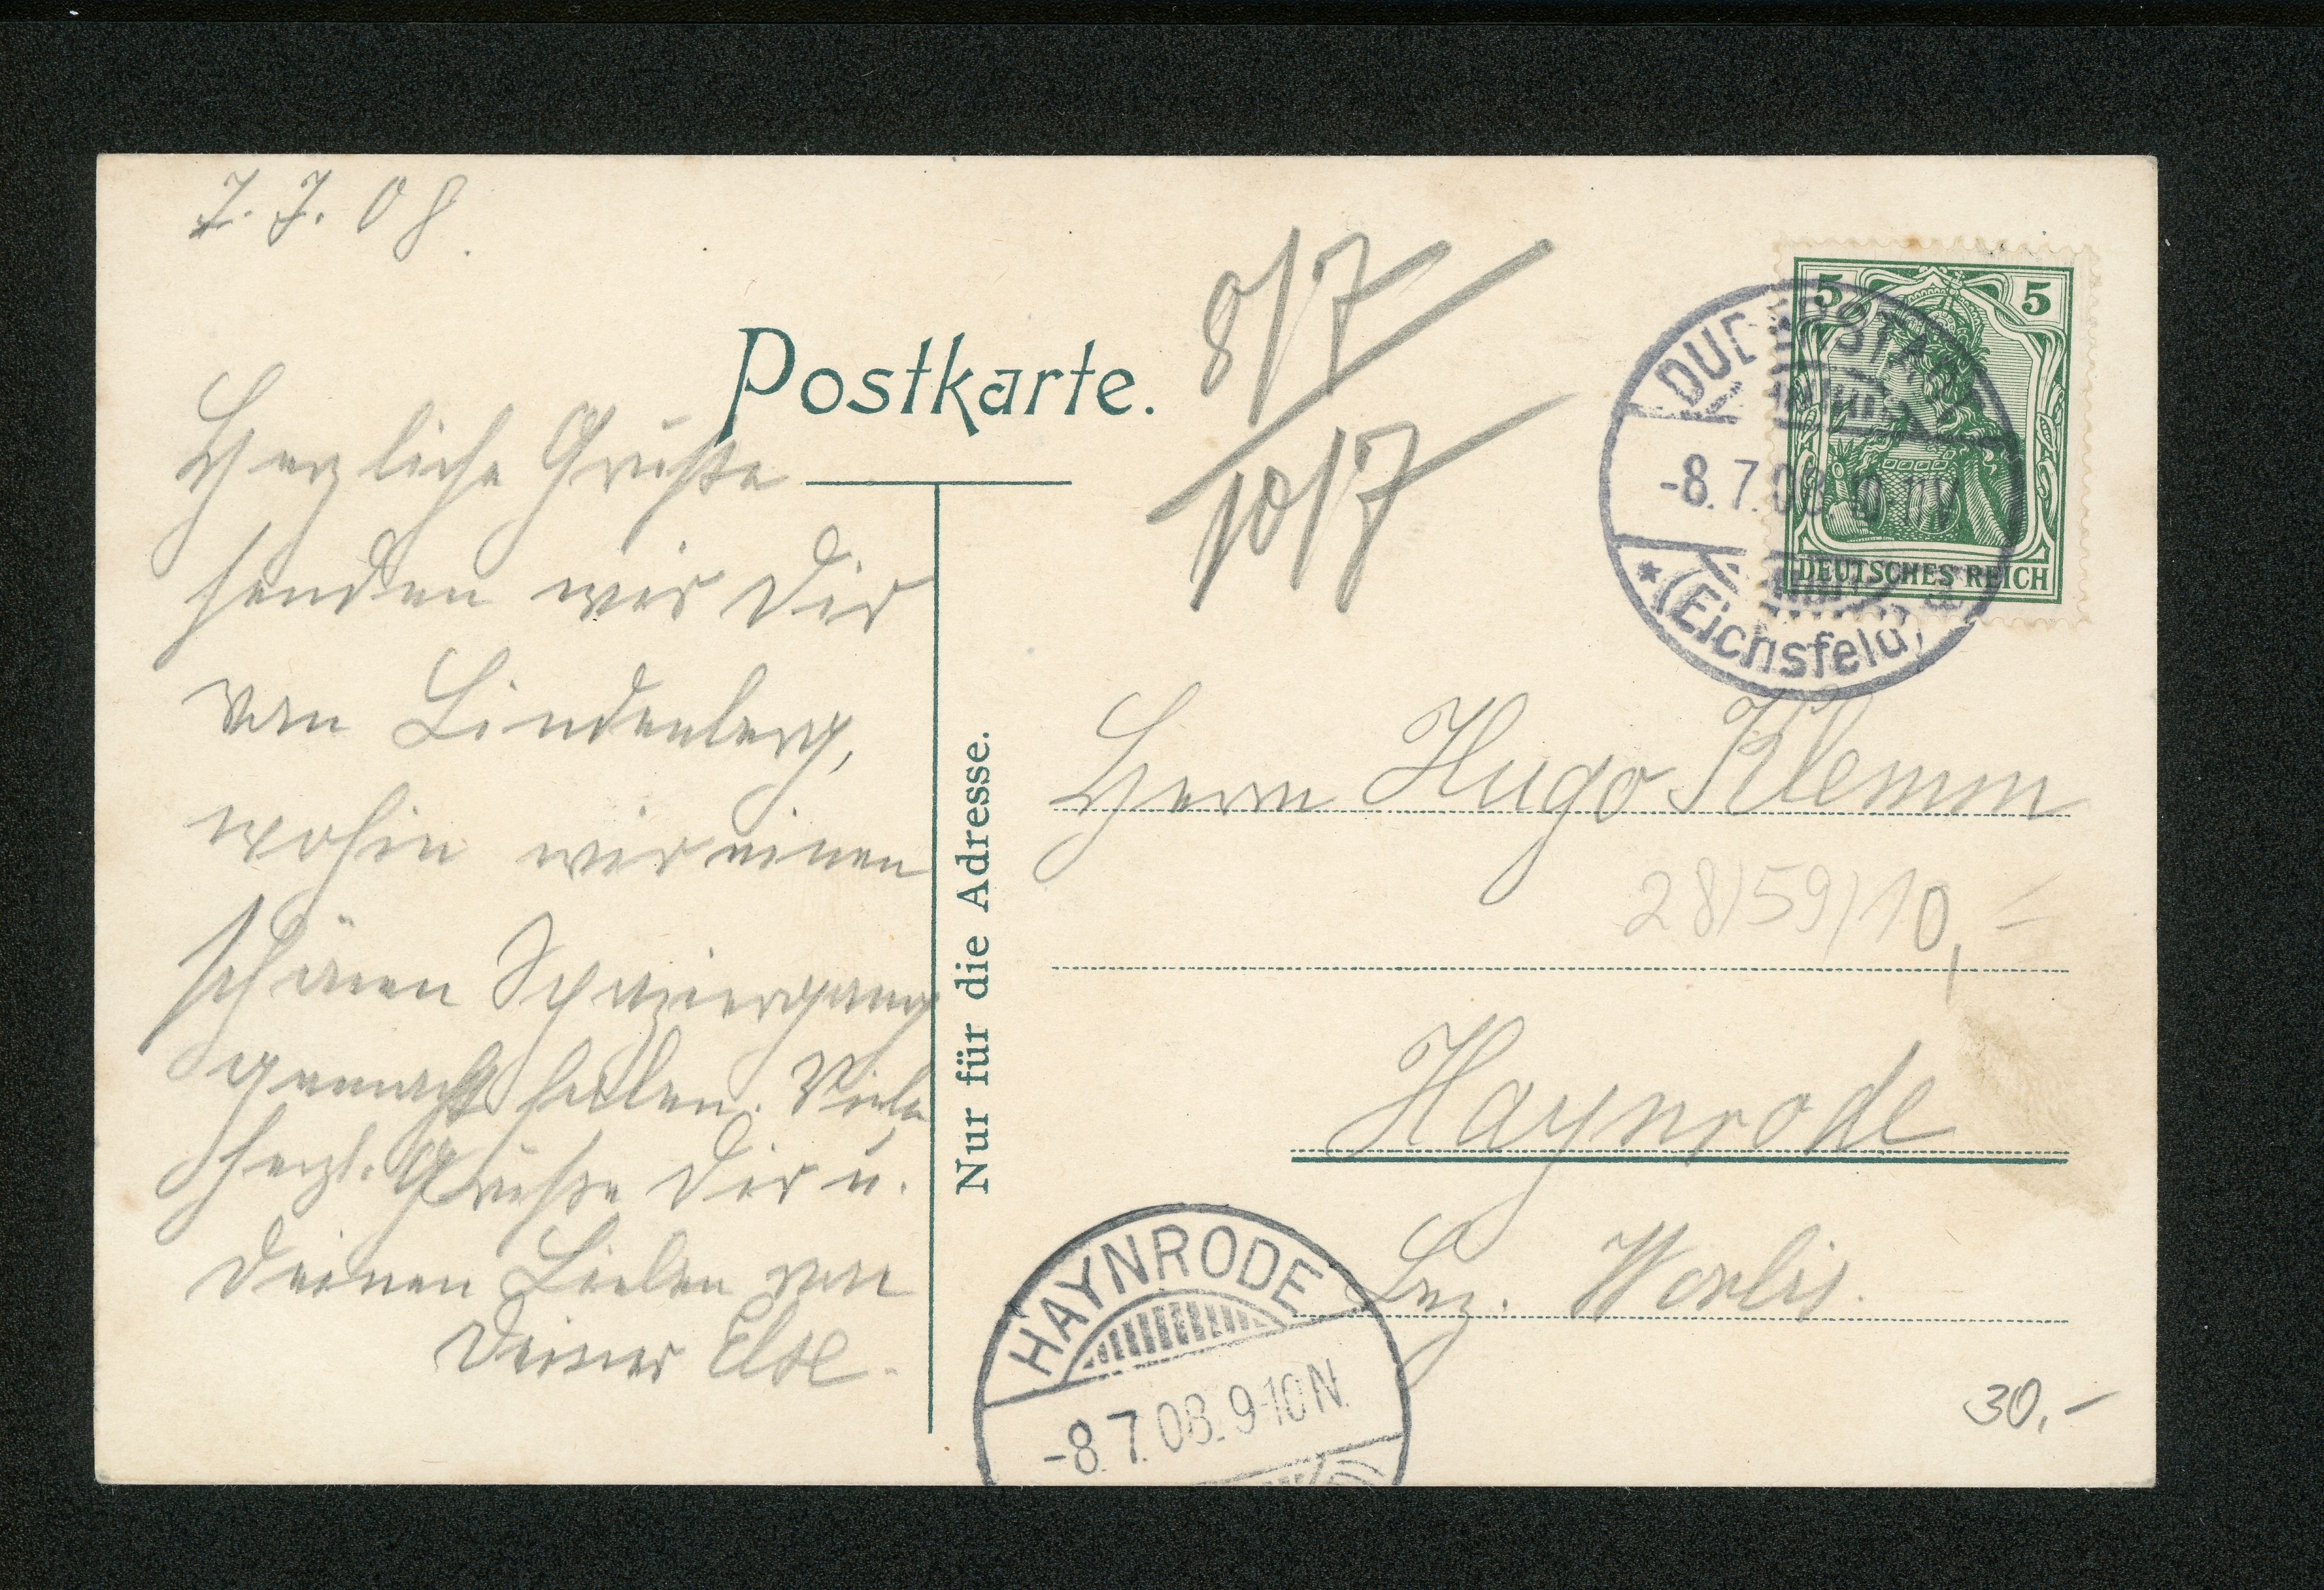 7.7.08.
Postkarte.
Herzliche Grüße
senden wir Dir
vom Lindenberg,
wohin wir einen
schönen Spaziergang
gemacht haben. Viele
herzl. Grüße Dir u.
Deinen Lieben von
Deiner Else.
Nur für die Adresse.
8/7
10/7
5 5
DEUTSCHES REICH
DUDERSTADT
-8.7.08.
* (Eichsfeld)
Herrn Hugo Klemm
28/59/10,-
Haynrode
Bez. Worbis.
HAYNRODE
-8.7.08. 9-10N.
30,-